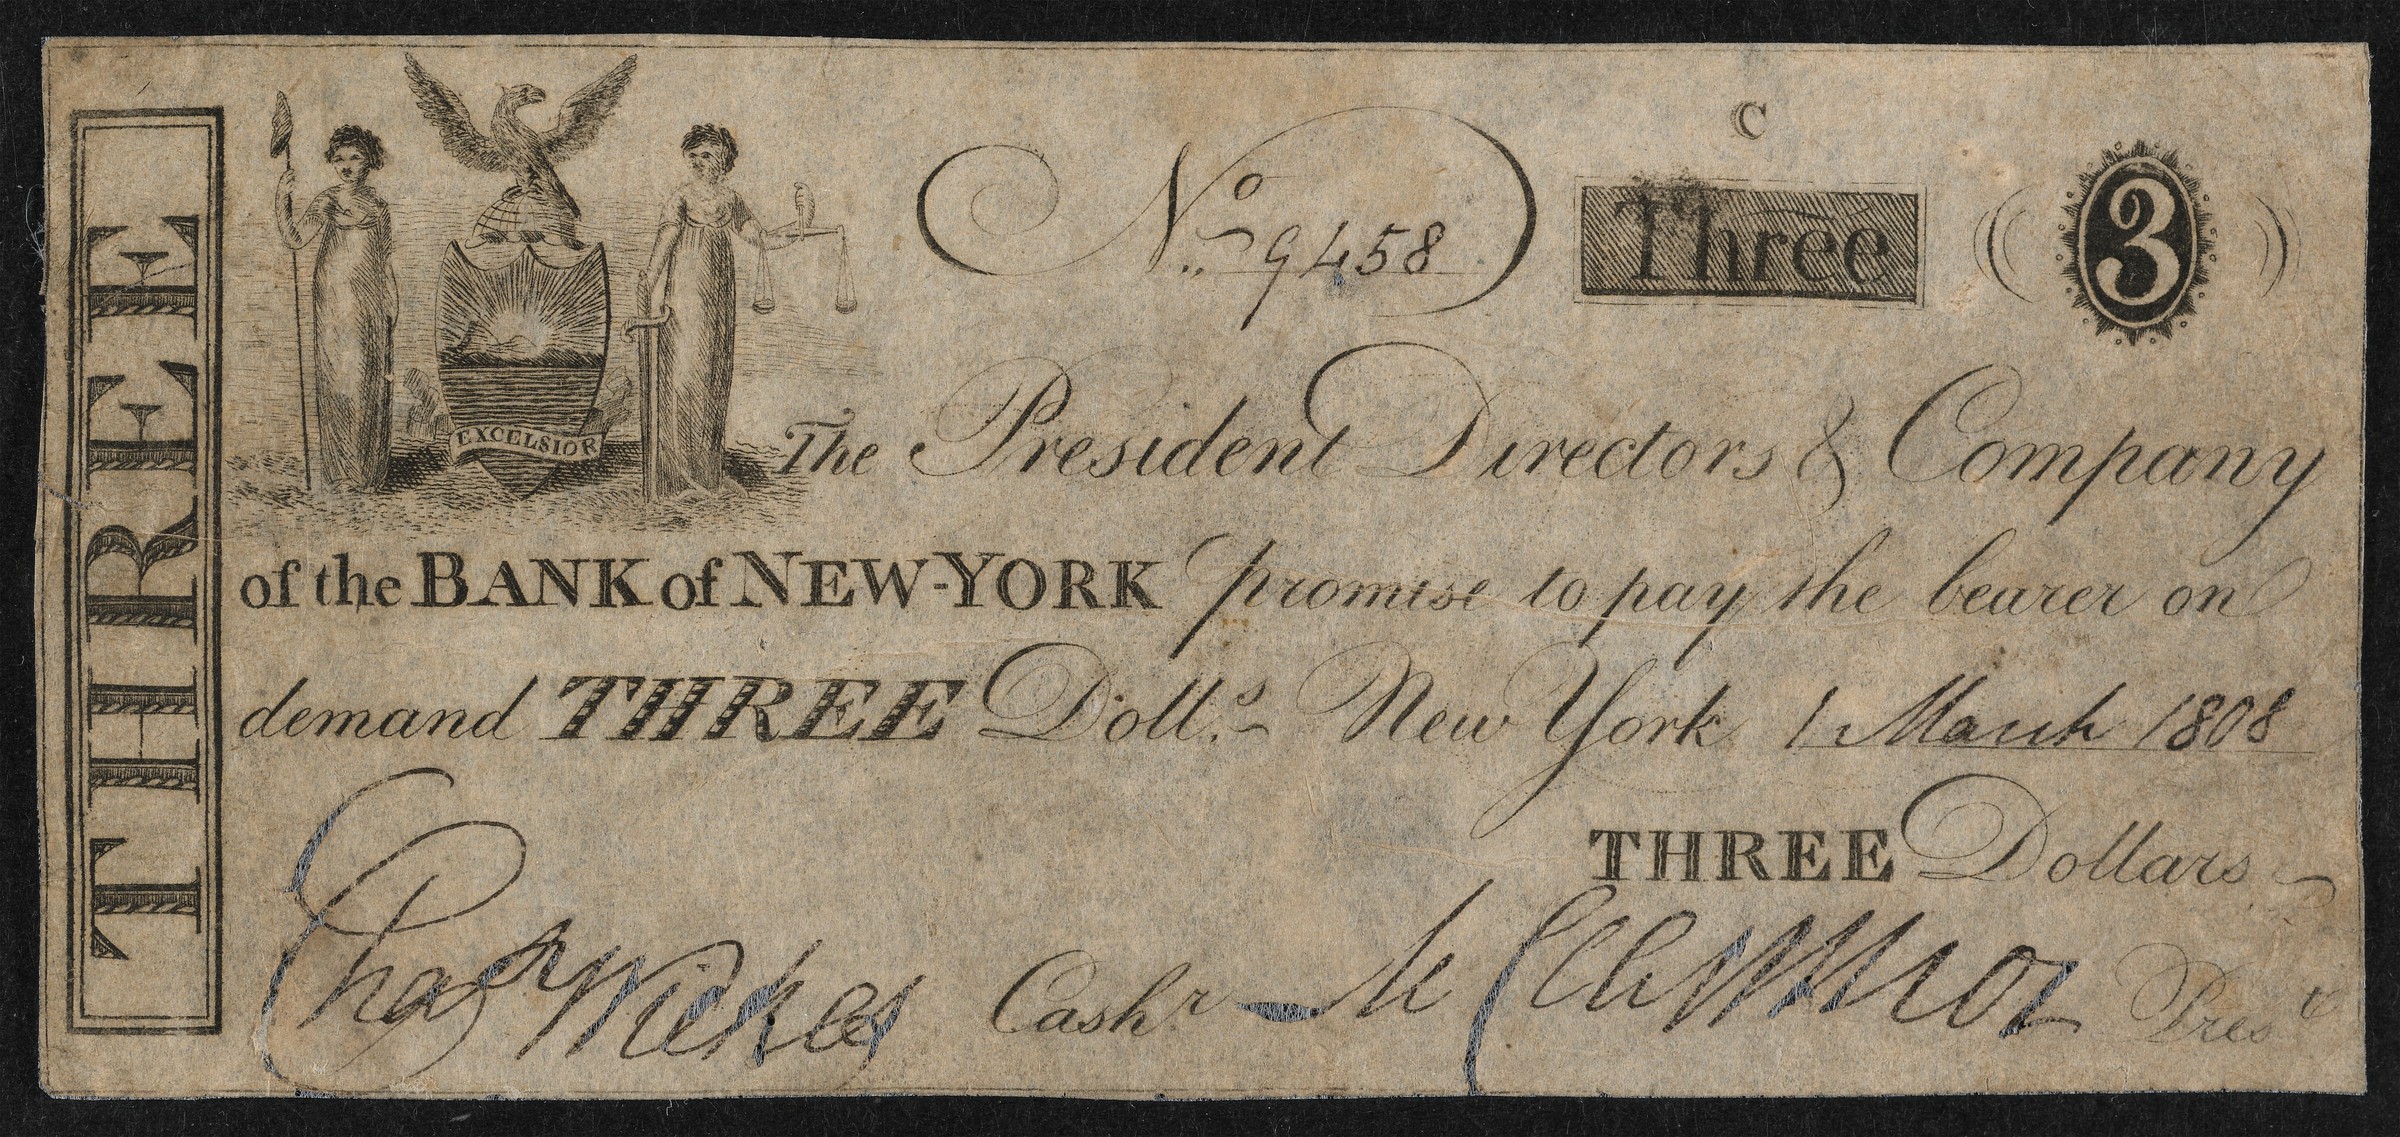 THREE
EXCELSIOR
C
No. 9458
Three
3
The President Directors & Company
of the BANK of NEW-YORK promise to pay the bearer on
demand THREE Doll.s New York 1 March 1808
THREE Dollars
Chas Wilkes Cash.r Pres.t